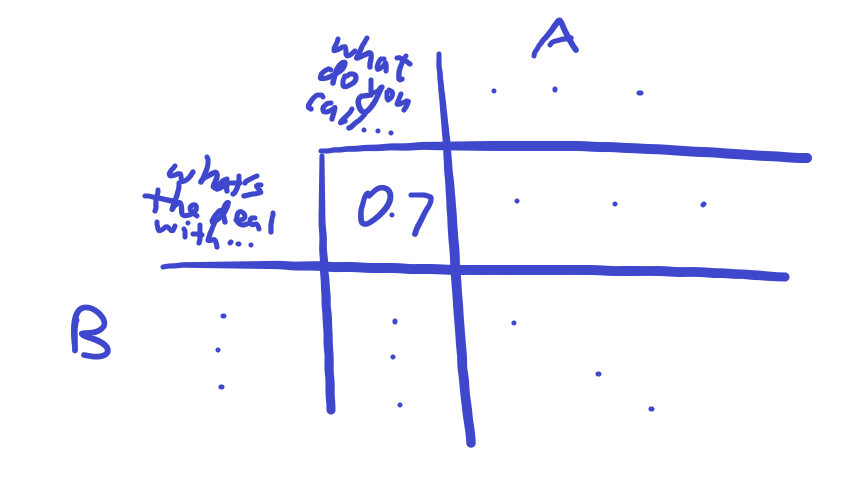 A
what
do
ya/you
call...
what's
the deal
with...
0.7
B